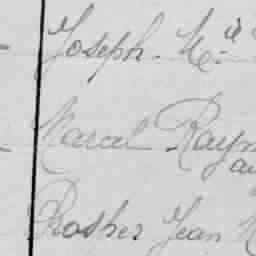 Joseph. M.
Marcel Raym
au
Prosper Jean